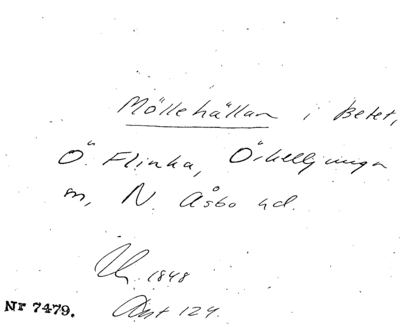 Möllehällan i Betet,
Ö. Flinka, Örkelljunga
sn, N. Åsbo hd.
1848
Nr 7479. Ant 124.